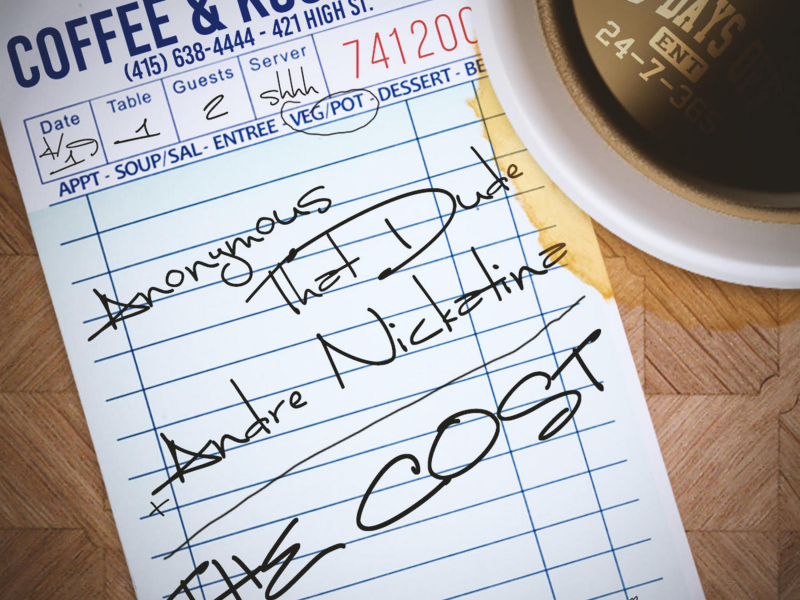 COFFEE &
(415) 638-4444 - 421 HIGH ST.
Date Table Guests Server
4/19 1 2 shhh 741200
APPT - SOUP/SAL - ENTREE - VEG/POT - DESSERT -
Anonymous
That Dude
Andre Nickatina
+
THE COST
DAYS
ENT
24-7-365